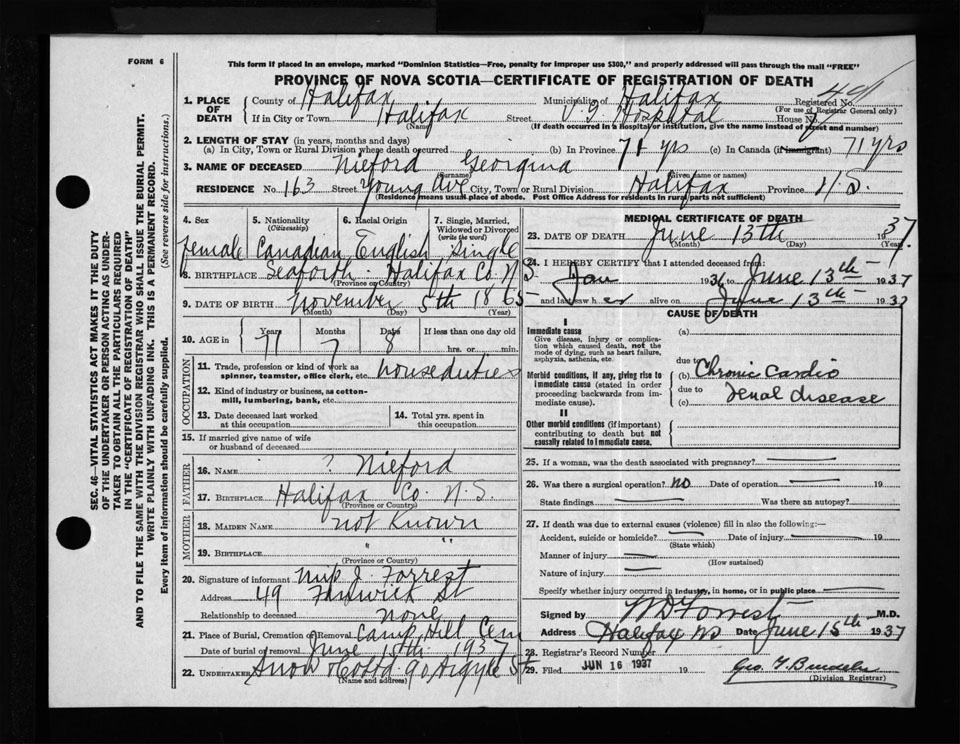 FORM 6
This form if placed in an envelope, marked "Dominion Statistics—Free, penalty for improper use $300," and properly addressed will pass through the mail "FREE"
PROVINCE OF NOVA SCOTIA—CERTIFICATE OF REGISTRATION OF DEATH
1. PLACE OF DEATH County of Halifax Municipality of Halifax Registered No.
(For use of Registrar General only)
If in City or Town Halifax Street V. G. Hospital House No.
(Name) (If death occurred in a hospital or institution, give the name instead of street and number)
2. LENGTH OF STAY (in years, months and days)
(a) In City, Town or Rural Division where death occurred (b) In Province 71 yrs (c) In Canada (if immigrant) 71 yrs
3. NAME OF DECEASED Nieford Georgina
(Surname) (Given name or names)
RESIDENCE No. 163 Street Young Ave City, Town or Rural Division Halifax Province N.S.
(Residence means usual place of abode. Post Office Address for residents in rural parts not sufficient)
4. Sex 5. Nationality (Citizenship) 6. Racial Origin 7. Single, Married, Widowed or Divorced (write the word)
Female Canadian English Single
8. BIRTHPLACE Seaforth - Halifax Co. N.S.
(Province or Country)
9. DATE OF BIRTH November 5th 1865
(Month) (Day) (Year)
10. AGE in Years Months Days If less than one day old
71 7 8 hrs. or min.
OCCUPATION
11. Trade, profession or kind of work as spinner, teamster, office clerk, etc. housedutics
12. Kind of industry or business, as cotton-mill, lumbering, bank, etc.
13. Date deceased last worked at this occupation
14. Total yrs. spent in this occupation
15. If married give name of wife or husband of deceased
FATHER
16. NAME ? Nieford
17. BIRTHPLACE Halifax Co. N.S.
(Province or Country)
MOTHER
18. MAIDEN NAME not known
19. BIRTHPLACE " "
(Province or Country)
20. Signature of informant J. Forrest
Address 49 Fenwick St
Relationship to deceased none
21. Place of Burial, Cremation or Removal Camp Hill Cem
Date of burial or removal June 15th 1937
22. UNDERTAKER Snow & Co Ltd 90 Argyle St
(Name and address)
MEDICAL CERTIFICATE OF DEATH
23. DATE OF DEATH June 13th 1937
(Month) (Day) (Year)
24. I HEREBY CERTIFY that I attended deceased from
Jan 1936 to June 13th 1937
and last saw her alive on June 13th 1937
CAUSE OF DEATH
I
Immediate cause
Give disease, injury or complication which caused death, not the mode of dying, such as heart failure, asphyxia, asthenia, etc.
(a)
due to
Morbid conditions, if any, giving rise to immediate cause (stated in order proceeding backwards from immediate cause).
(b) Chronic Cardio
due to
(c) renal disease
II
Other morbid conditions (if important) contributing to death but not causally related to immediate cause.
25. If a woman, was the death associated with pregnancy?
26. Was there a surgical operation? no Date of operation 19
State findings Was there an autopsy?
27. If death was due to external causes (violence) fill in also the following:—
Accident, suicide or homicide? Date of injury 19
(State which)
Manner of injury
(How sustained)
Nature of injury
Specify whether injury occurred in industry, in home, or in public place
Signed by W D Forrest M.D.
Address Halifax NS Date June 15th 1937
28. Registrar's Record Number
29. Filed JUN 16 1937 19
(Division Registrar)
SEC. 46—VITAL STATISTICS ACT MAKES IT THE DUTY
OF THE UNDERTAKER OR PERSON ACTING AS UNDER-
TAKER TO OBTAIN ALL THE PARTICULARS REQUIRED
IN THE "CERTIFICATE OF REGISTRATION OF DEATH"
AND TO FILE THE SAME WITH THE DIVISION REGISTRAR WHO SHALL ISSUE THE BURIAL PERMIT.
WRITE PLAINLY WITH UNFADING INK. THIS IS A PERMANENT RECORD.
Every item of information should be carefully supplied. (See reverse side for instructions.)